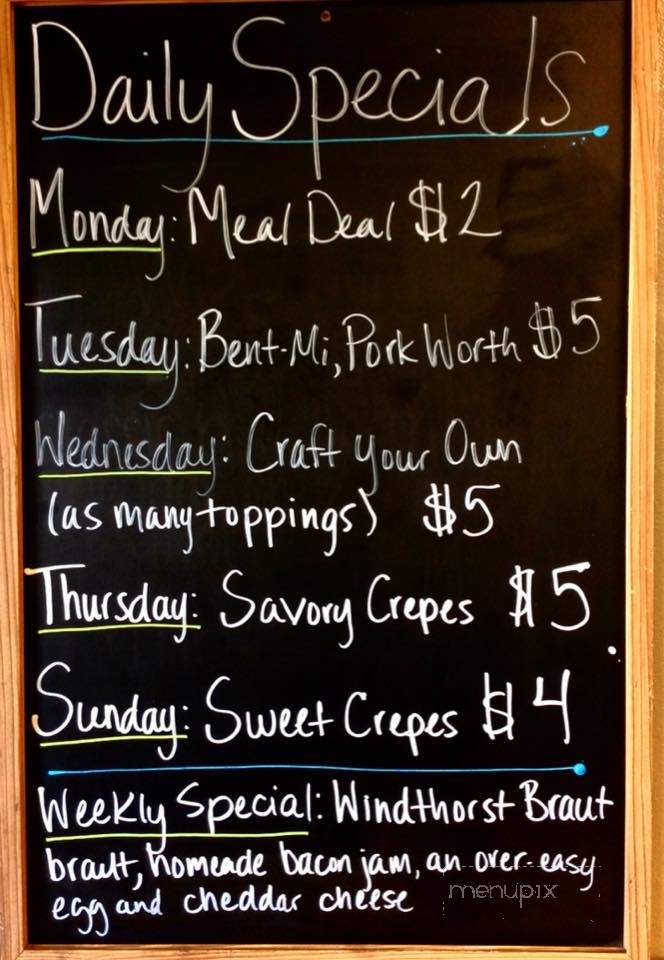 Daily Specials
Monday: Meal Deal $2
Tuesday: Bent-Mi, Pork Worth $5
Wednesday: Craft Your Own
(as many toppings) $5
Thursday: Savory Crepes $5
Sunday: Sweet Crepes $4
Weekly Special: Windthorst Braut
brautt, homeade bacon jam, an over-easy
egg and cheddar cheese
menupix